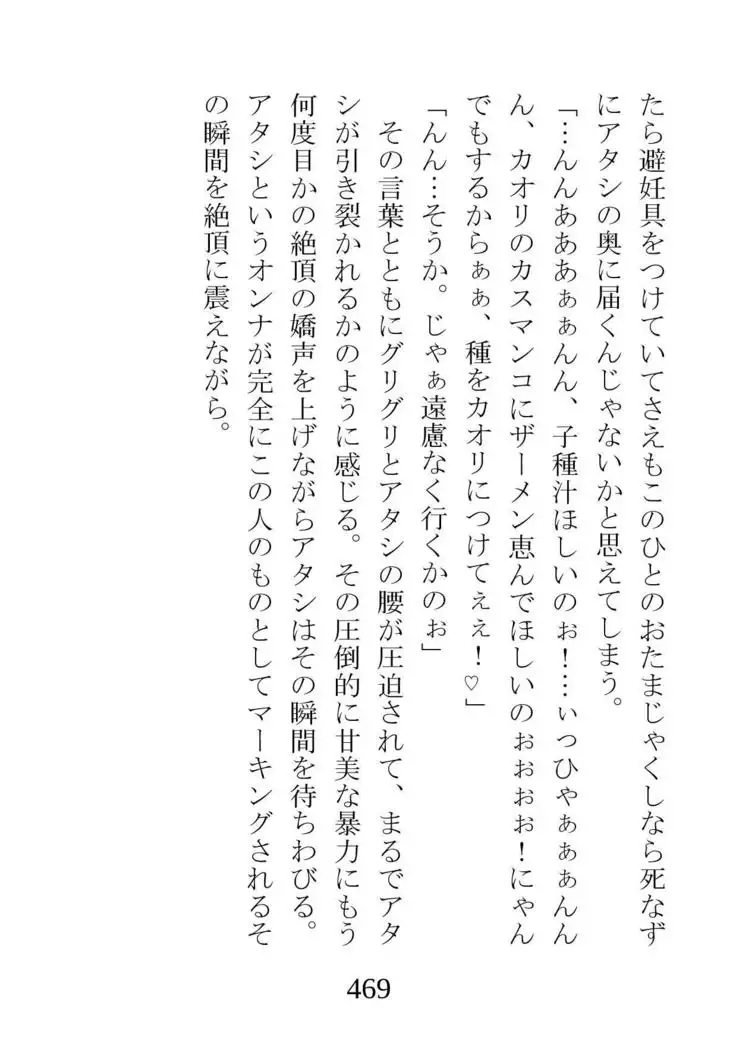 たら避妊具をつけていてさえもこのひとのおたまじゃくしなら死なず
にアタシの奥に届くんじゃないかと思えてしまう。
「…んんあああぁぁんん、子種汁ほしいのぉ！…ぃっひゃぁぁぁんん
ん、カオリのカスマンコにザーメン恵んでほしいのぉぉぉぉ！にゃん
でもするからぁぁ、種をカオリにつけてぇぇ！♡」
「んん…そうか。じゃぁ遠慮なく行くかのぉ」
　その言葉とともにグリグリとアタシの腰が圧迫されて、まるでアタ
シが引き裂かれるかのように感じる。その圧倒的に甘美な暴力にもう
何度目かの絶頂の嬌声を上げながらアタシはその瞬間を待ちわびる。
アタシというオンナが完全にこの人のものとしてマーキングされるそ
の瞬間を絶頂に震えながら。
469